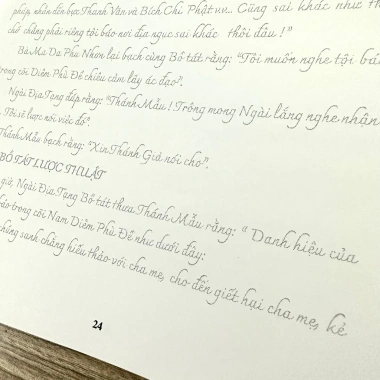 pháp nhân đến bực Thanh Văn và Bích Chi Phật v.v... Cũng sai khác như th
chớ chẳng phải riêng tội báo nơi địa ngục sai khác thôi đâu !"
Bà Ma Da Phu Nhơn lại bạch cùng Bồ tát rằng: "Tôi muốn nghe tội bá
trong cõi Diêm Phù Đề chiêu cảm lấy ác đạo".
Ngài Địa Tạng đáp rằng: "Thánh Mẫu ! Trông mong Ngài lắng nghe nhận
. Tôi sẽ lược nói việc đó".
Thánh Mẫu bạch rằng: "Xin Thánh Giả nói cho".
BỒ TÁT LƯỢC THUẬT
giờ, Ngài Địa Tạng Bồ tát thưa Thánh Mẫu rằng: " Danh hiệu của
báo trong cõi Nam Diêm Phù Đề như dưới đây:
chúng sanh chẳng hiếu thảo với cha mẹ, cho đến giết hại cha mẹ, kẻ
24